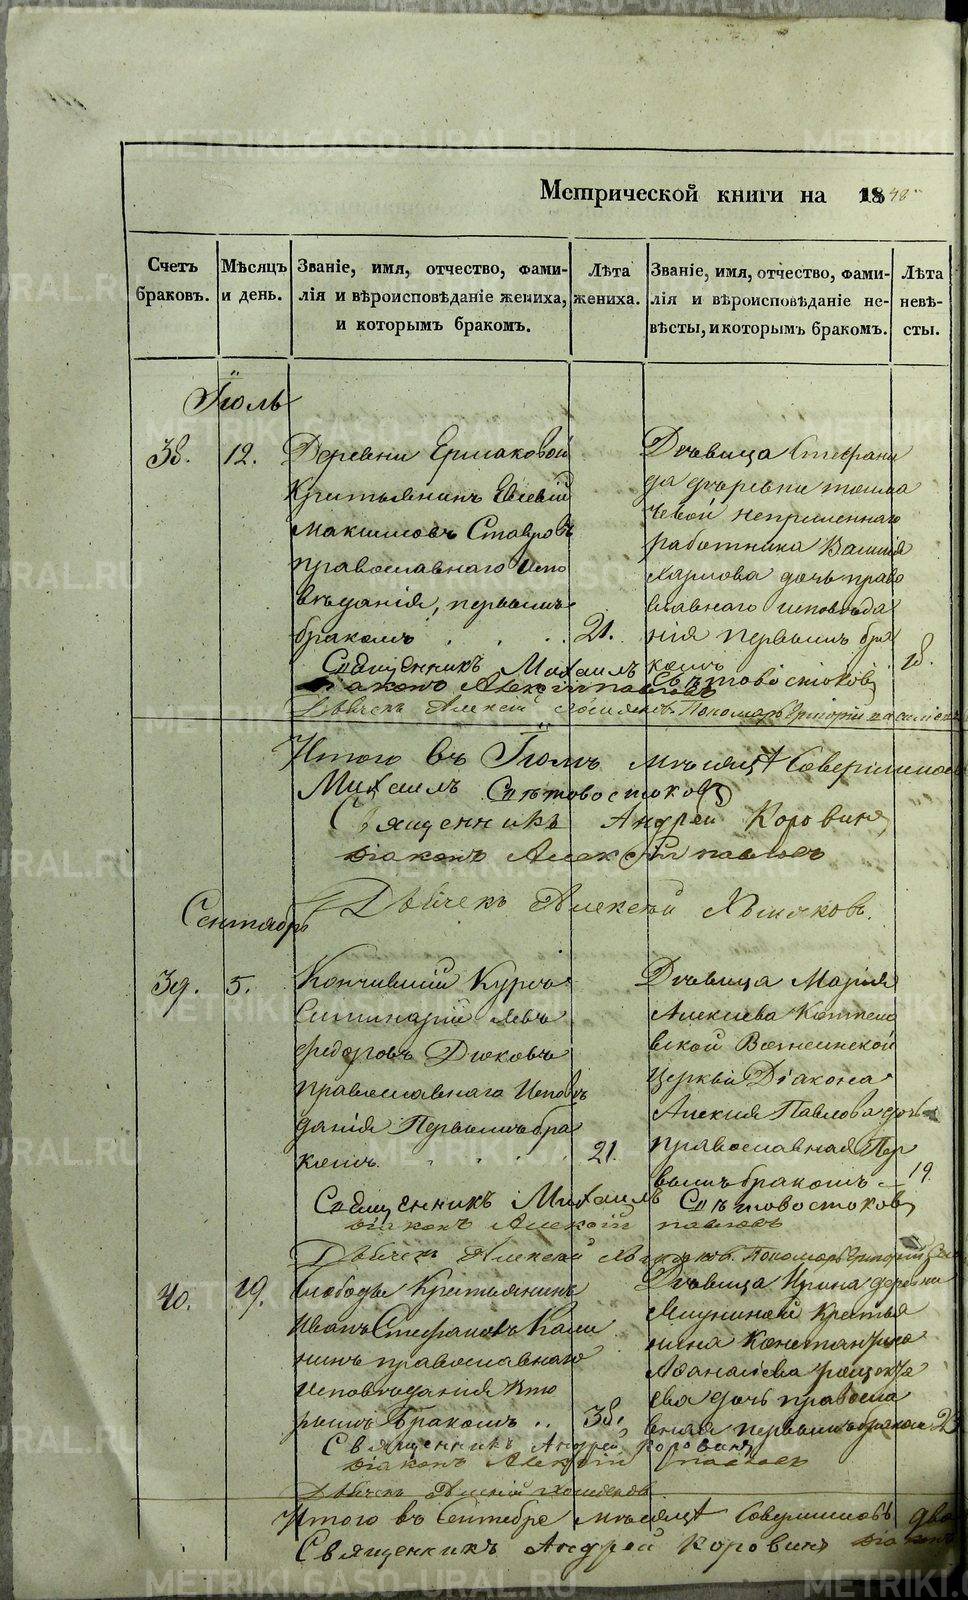 Метрической книги на 1848
Счетъ браковъ.
Мѣсяцъ и день.
Званіе, имя, отчество, фами-
лія и вѣроисповѣданіе жениха,
и которымъ бракомъ.
Лѣта
жениха.
Званіе, имя, отчество, фами-
лія и вѣроисповѣданіе не-
вѣсты, и которымъ бракомъ.
Лѣта
невѣ-
сты.
Іюль
38. 12.
Деревни Ермаковой
Крестьянинъ Евсевій
Максимовъ Ставровъ
православнаго испо
вѣданія, первымъ
бракомъ . . . . 21.
Дѣвица Стефани
да деревни толма
чевой непременнаго
работника Василія
Харлова дочь право
славнаго исповѣда
нія первымъ бра
комъ 18.
Священникъ Михаилъ Свѣтовостоковъ
Діаконъ Алексѣй Павловъ
Дьячекъ Алексѣй Пономарь Григорій
Итого въ Іюлѣ мѣсяцѣ Совершилось
Михаилъ Свѣтовостоковъ
Священникъ Андрей Коровинъ
Діаконъ Алексѣй Павловъ
Дьячекъ Алексѣй Хомяковъ.
Сентябрь
39. 5.
Кончившій Курсъ
Семинаріи Левъ
Федоровъ Дюковъ
православнаго Исповѣ
данія Первымъ бра
комъ . . . . 21.
Дѣвица Марія
Алексіева Коптело
вской Вознесенской
Церкви Діакона
Алексія Павлова дочь
православная Пер
вымъ бракомъ – 19.
Священникъ Михаилъ Свѣтовостоковъ
Діаконъ Алексѣй Павловъ
Дьячекъ Алексѣй Хомяковъ. Пономарь Григорій
40. 19.
Слободы Крестьянинъ
Иванъ Стефановъ Кали
нинъ православнаго
исповѣданія вто
рымъ бракомъ .. 38.
Дѣвица Ирина деревни
Ялуниной Крестья
нина Константина
Афанасіева
ева дочь правосла
вная первымъ бракомъ 23
Священникъ Андрей Коровинъ
Діаконъ Алексѣй Павловъ
Дьячекъ Алексѣй Хомяковъ
Итого въ Сентебре мѣсяцѣ Совершилось два
Священникъ Андрей Коровинъ Діаконъ
METRIKI.GASO-URAL.RU